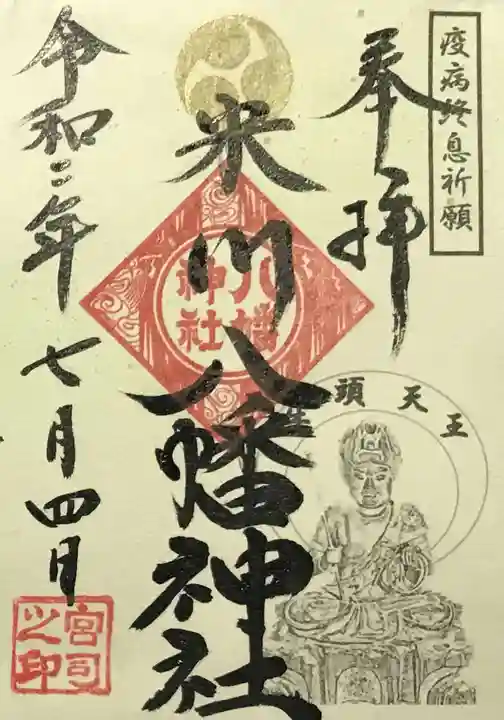 疫病終息祈願
奉拝
牛頭天王
米川八幡神社
八幡
神社
令和二年七月四日
宮司
之印